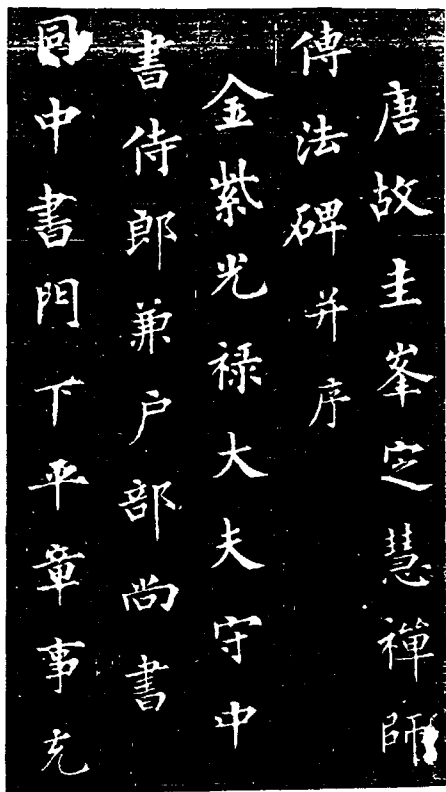 唐故圭峯定慧禪師
傳法碑并序
金紫光禄大夫守中
書侍郎兼户部尚書
同中書門下平章事充